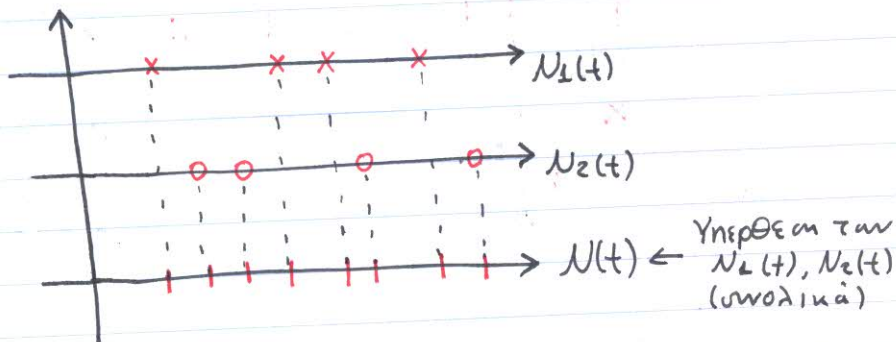 N1(t)
N2(t)
N(t) ← Υπέρθεση των
N1(t), N2(t)
(συνολικά)